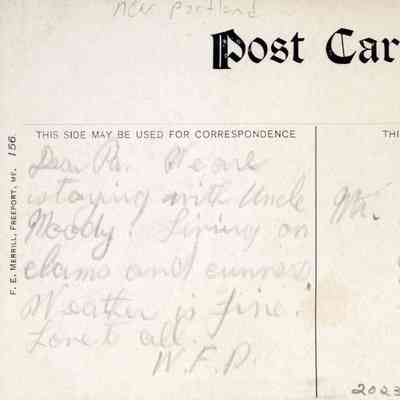 near Portland
Post Car
THIS SIDE MAY BE USED FOR CORRESPONDENCE
THI
F. E. MERRILL, FREEPORT, ME. 156.
Dear Pa. We are
staying with Uncle
Moody. Living on
clams and cunners.
Weather is fine.
Love to all.
W.F.D.
Mr.
2023